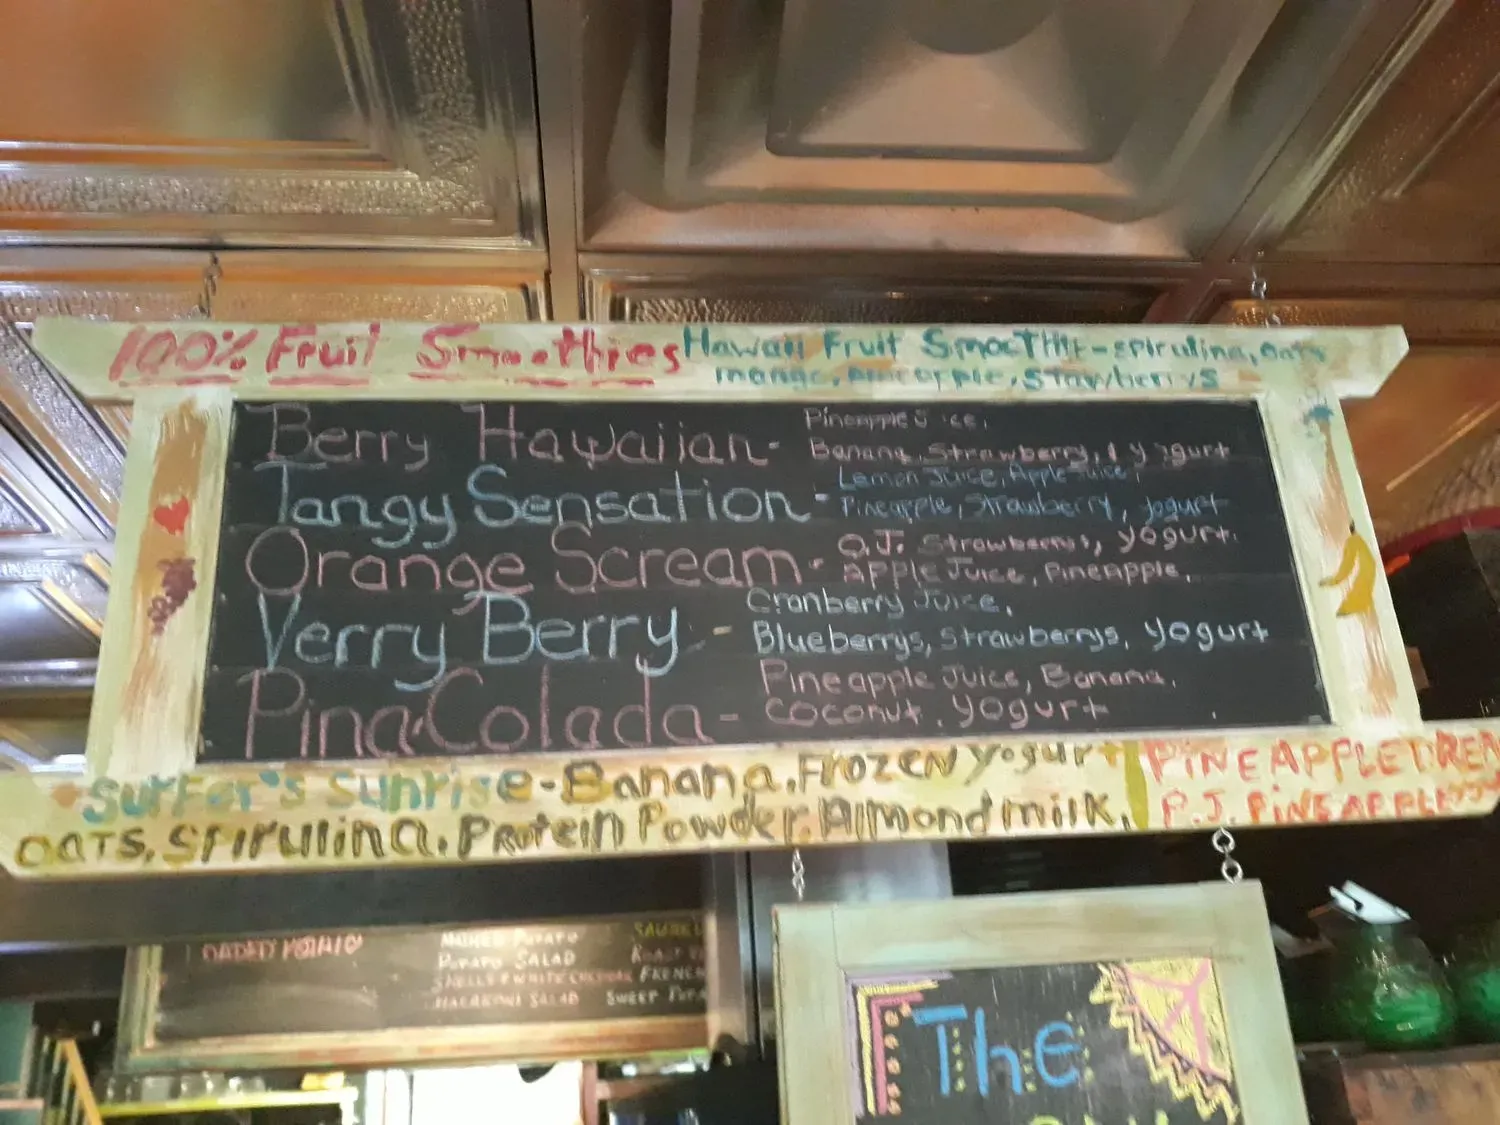 100% Fruit Smoothies
Hawaii Fruit Smoothie-spirulina, oats
mango, pineapple, strawberrys
Berry Hawaiian-
Pineapple Juice,
Banana, Strawberry, & yogurt
Tangy Sensation-
Lemon Juice, Apple Juice,
Pineapple, Strawberry, yogurt
Orange Scream-
O.J. Strawberrys, yogurt.
Apple Juice, Pineapple,
Verry Berry -
Cranberry Juice,
Blueberrys, Strawberrys, yogurt
Pina Colada-
Pineapple Juice, Banana,
coconut, yogurt
Surfer's Sunrise-Banana, Frozen yogurt
oats, Spirulina, Protein Powder, Almond milk,
PINEAPPLE DREA
P.J. PINEAPPLE
POTATO SALAD
MACARONI SALAD
SWEET
The